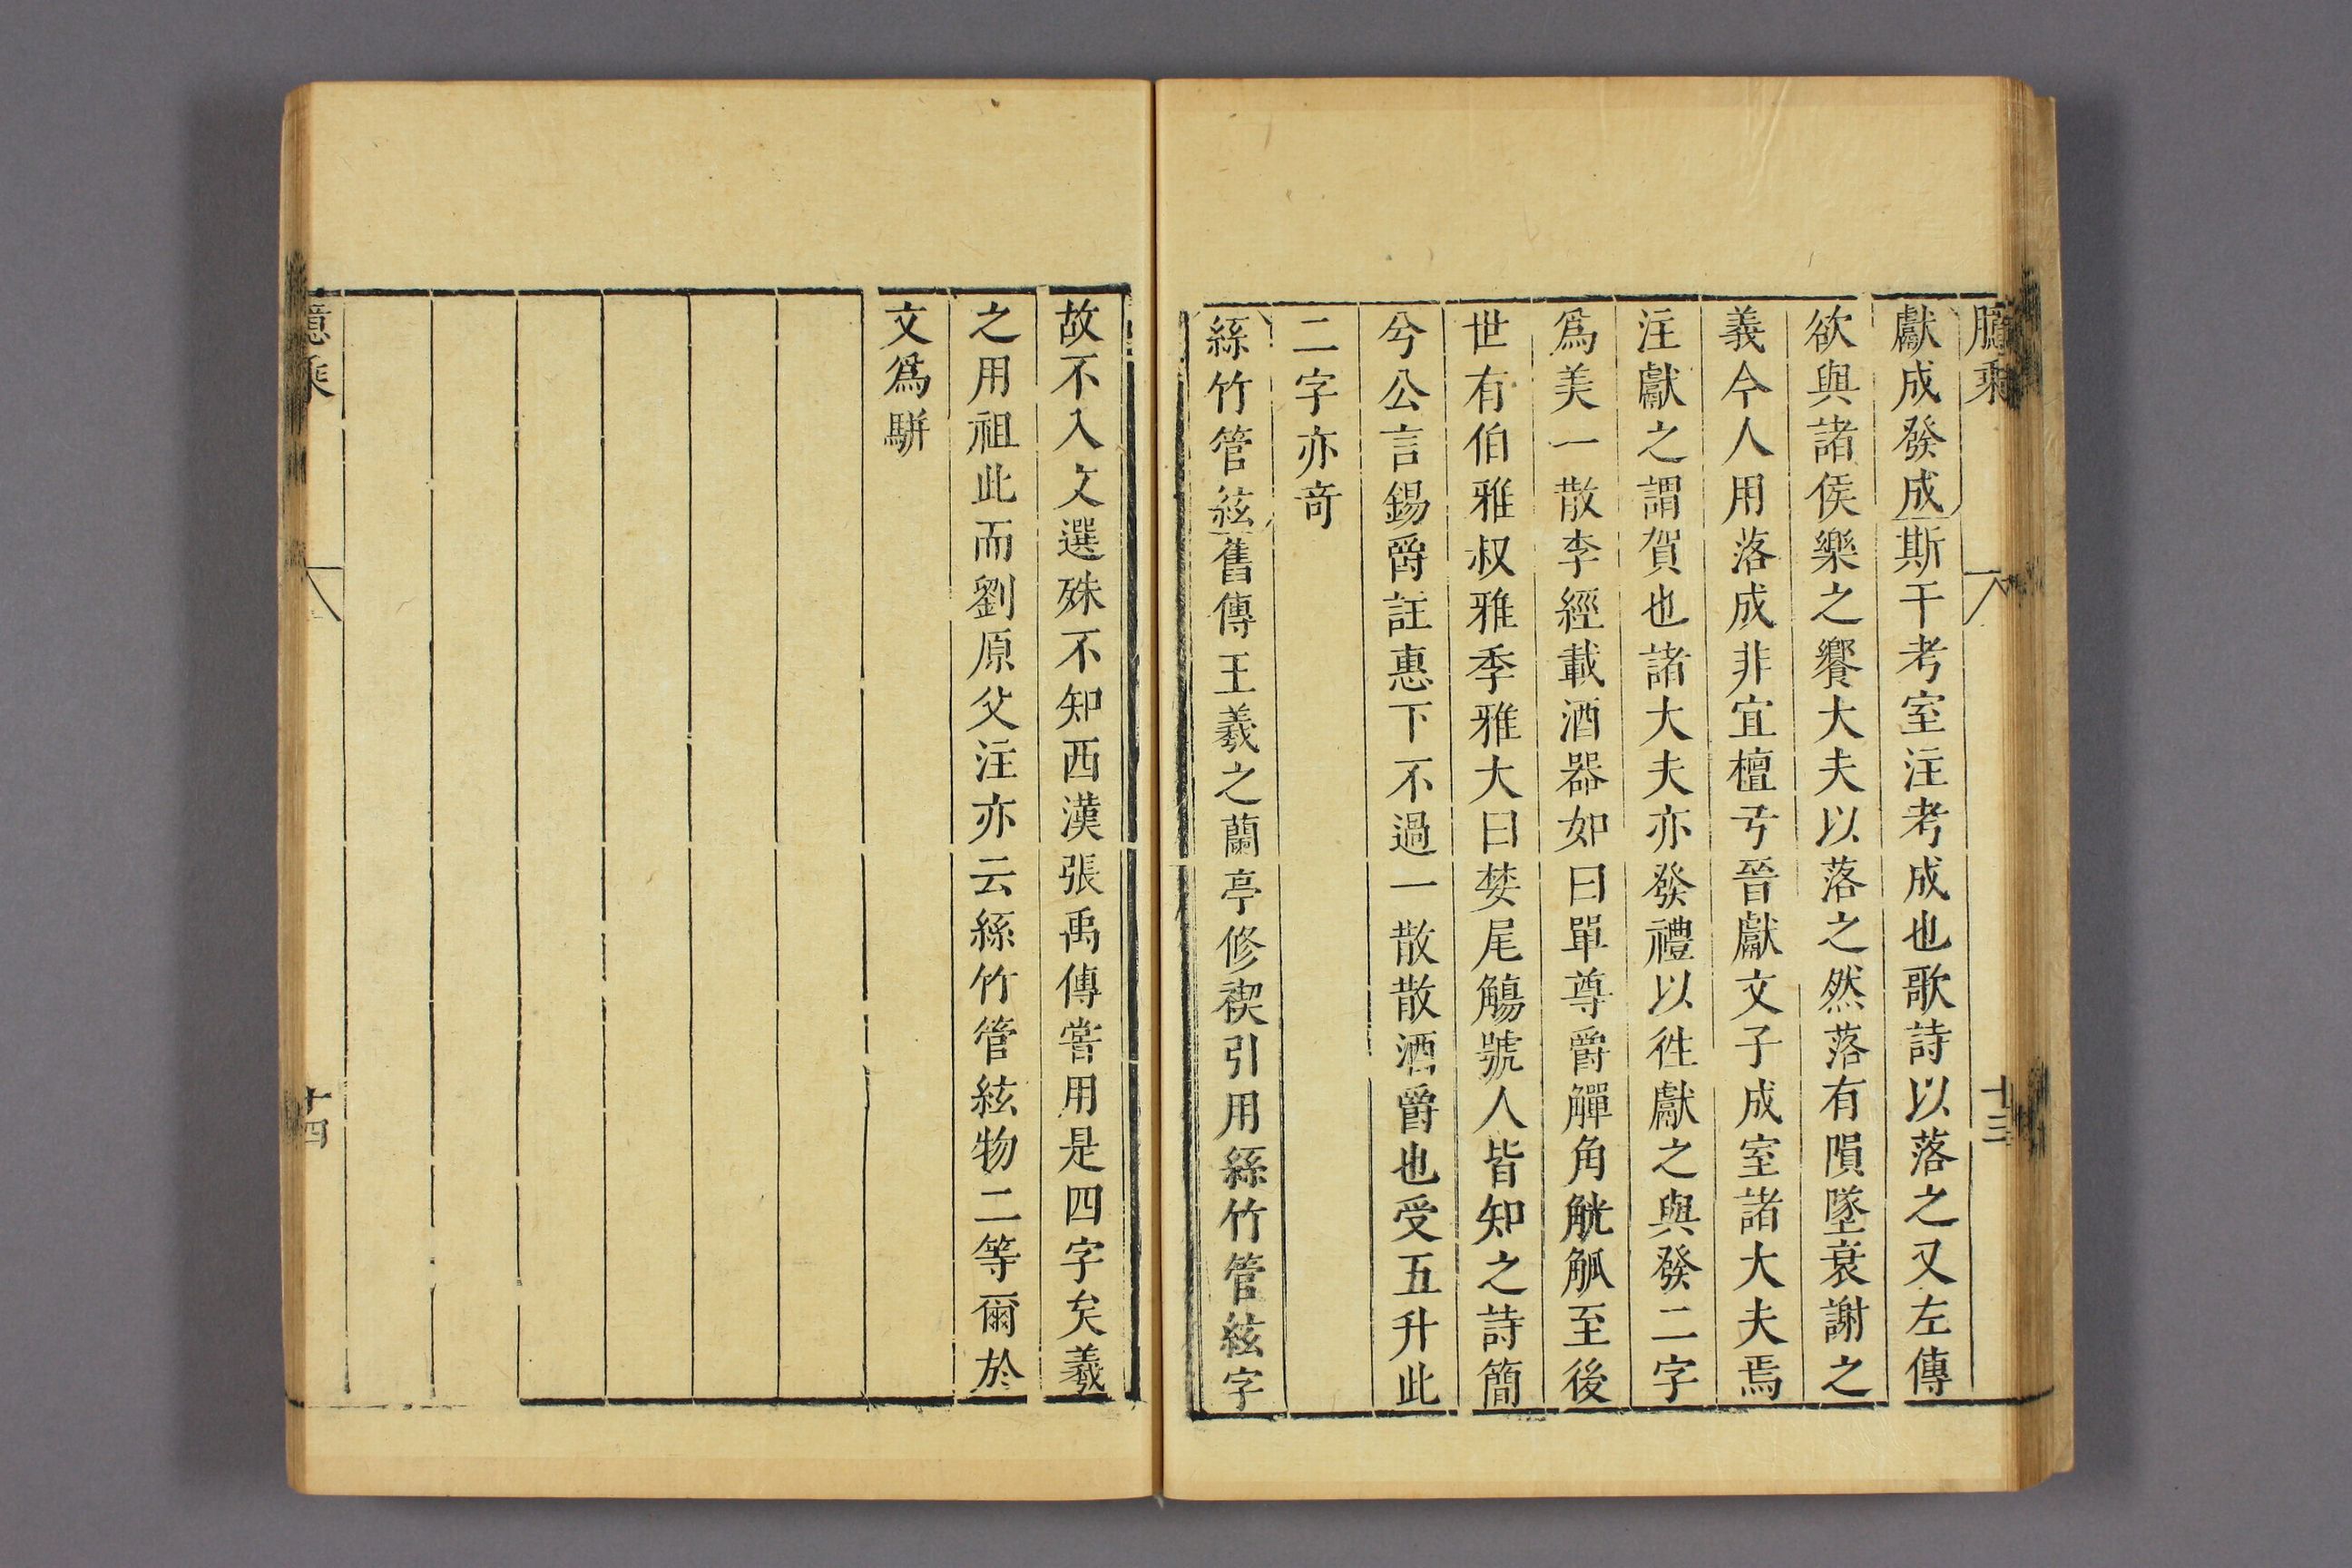 臆乘
十三
獻成發成斯干考室注考成也歌詩以落之又左傳
欲與諸侯樂之饗大夫以落之然落有隕墜衰謝之
義今人用落成非宜檀弓晉獻文子成室諸大夫焉
注獻之謂賀也諸大夫亦發禮以徃獻之與發二字
爲美一散李經載酒器如曰單尊爵觶角觥觚至後
世有伯雅叔雅季雅大曰婪尾觴號人皆知之詩簡
兮公言錫爵註惠下不過一散散酒爵也受五升此
二字亦竒
絲竹管絃舊傳王羲之蘭亭修禊引用絲竹管絃字
故不入文選殊不知西漢張禹傳嘗用是四字矣羲
之用祖此而劉原父注亦云絲竹管絃物二等爾於
文爲駢
臆乘
十四